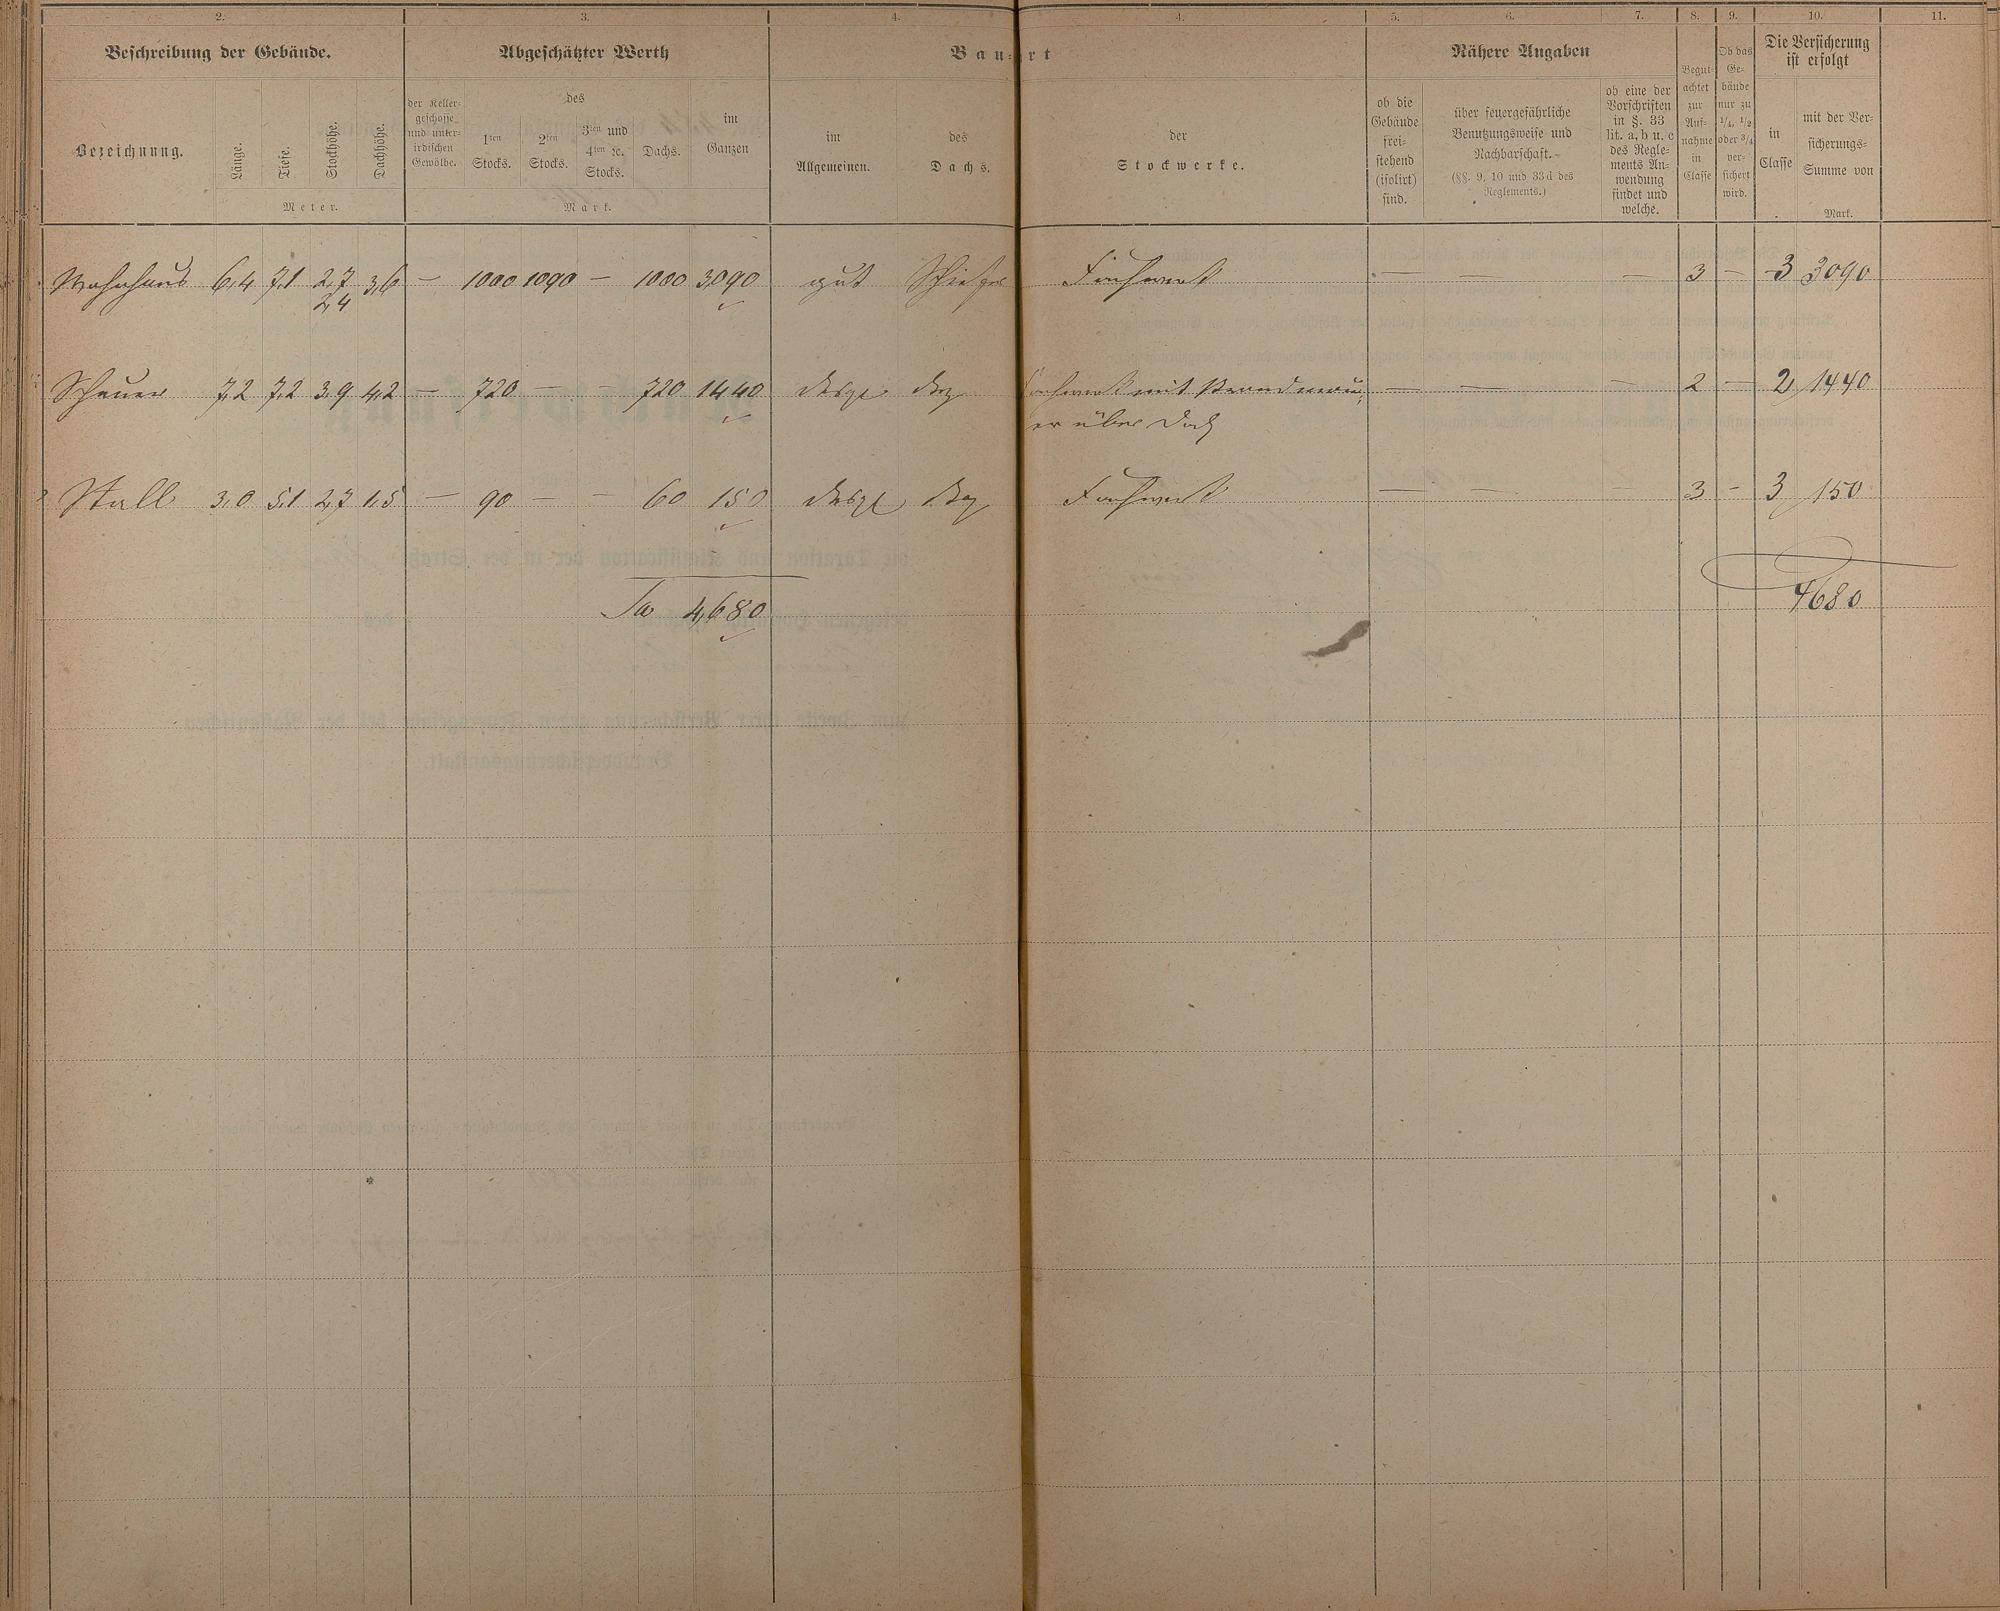 2. 3. 4. 4. 5. 6. 7. 8. 9. 10. 11.
Beschreibung der Gebäude. Abgeschätzter Werth Bau-art Nähere Angaben Die Versicherung ist erfolgt
Bezeichnung. Länge. Tiefe. Stockhöhe. Dachhöhe.
Meter.
der Kellergeschosse und unterirdischen Gewölbe.
des
1ten Stocks. 2ten Stocks. 3ten und 4ten ꝛc. Stocks. Dachs.
im Ganzen
Mark.
im Allgemeinen.
des Dachs.
der Stockwerke.
ob die Gebäude freistehend (isolirt) sind.
über feuergefährliche Benutzungsweise und Nachbarschaft.
(§§. 9, 10 und 33d des Reglements.)
ob eine der Vorschriften in §. 33 lit. a, b u. c des Reglements Anwendung findet und welche.
Begutachtet zur Aufnahme in Classe
Ob das Gebäude nur zu 1/4, 1/2 oder 3/4 versichert wird.
in Classe
mit der Versicherungs-Summe von
Mark.
Wohnhaus 6,4 7,1 2,7 3,6 — 1000 1090 — 1000 3,090 gut Schiefer Fachwerk — — — 3 — 3 3090
2,4
Scheuer 7,2 7,2 3,9 4,2 — 720 — — 720 1440 desgl. desgl. Fachwerk mit Brandmau- — — — 2 — 2 1440
er über Dach
Stall 3,0 5,1 2,7 1,5 — 90 — — 60 150 desgl. desgl. Fachwerk — — — 3 — 3 150
Sa 4,680 4680